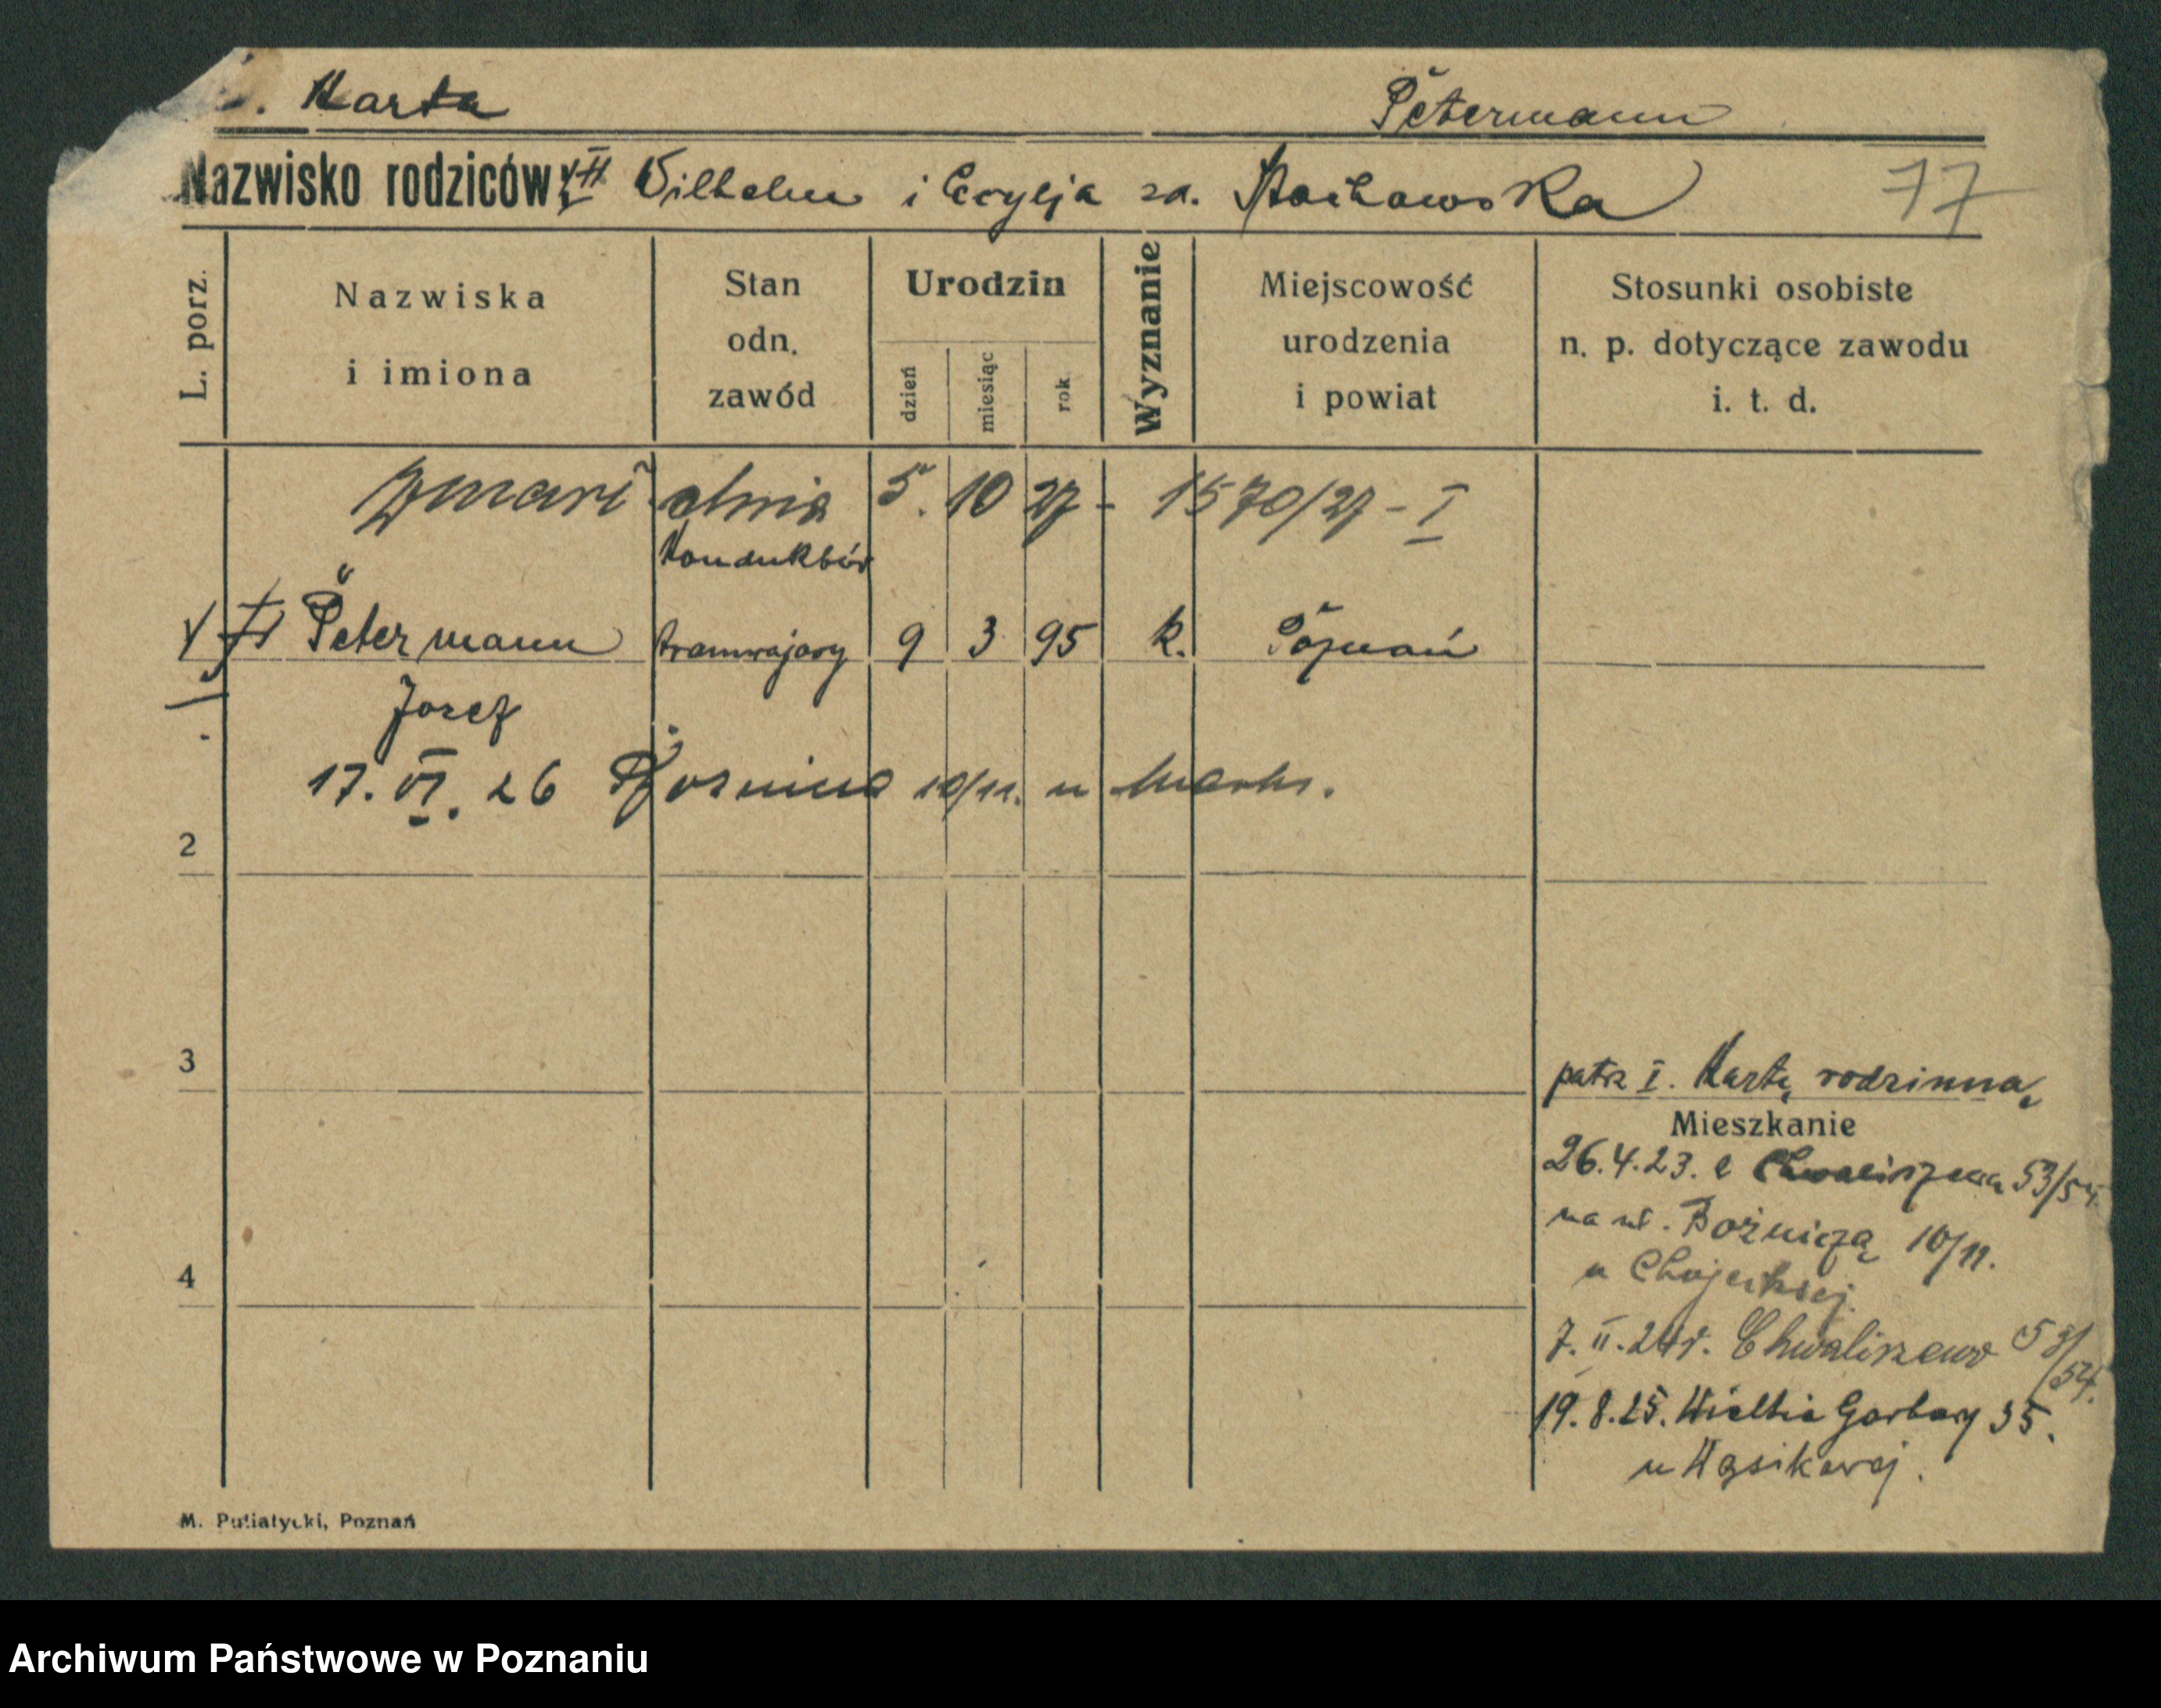 . Karta Petermann
Nazwisko rodziców: Wilhelm i Cecylja zd. Stachowska 77
L. porz.
Nazwiska i imiona
Stan odn. zawód
Urodzin
dzień miesiąc rok
Wyznanie
Miejscowość urodzenia i powiat
Stosunki osobiste n. p. dotyczące zawodu i. t. d.
Zmarł dnia 5. 10 27 - 1570/27 - I
Konduktór
Petermann tramwajowy 9 3 95 k. Poznań
Józef
17. VI. 26 10/11. u
2
3
patrz I. Kartę rodzinną
Mieszkanie
26.4.23. z Chwaliszewa 53/54.
na ul. Bożniczą 10/11.
4
u
7. II. 24 r. Chwaliszewo 53/54.
19. 8. 25. Wielkie Garbary 35.
u Wąsikowej.
M. Putiatycki, Poznań
Archiwum Państwowe w Poznaniu